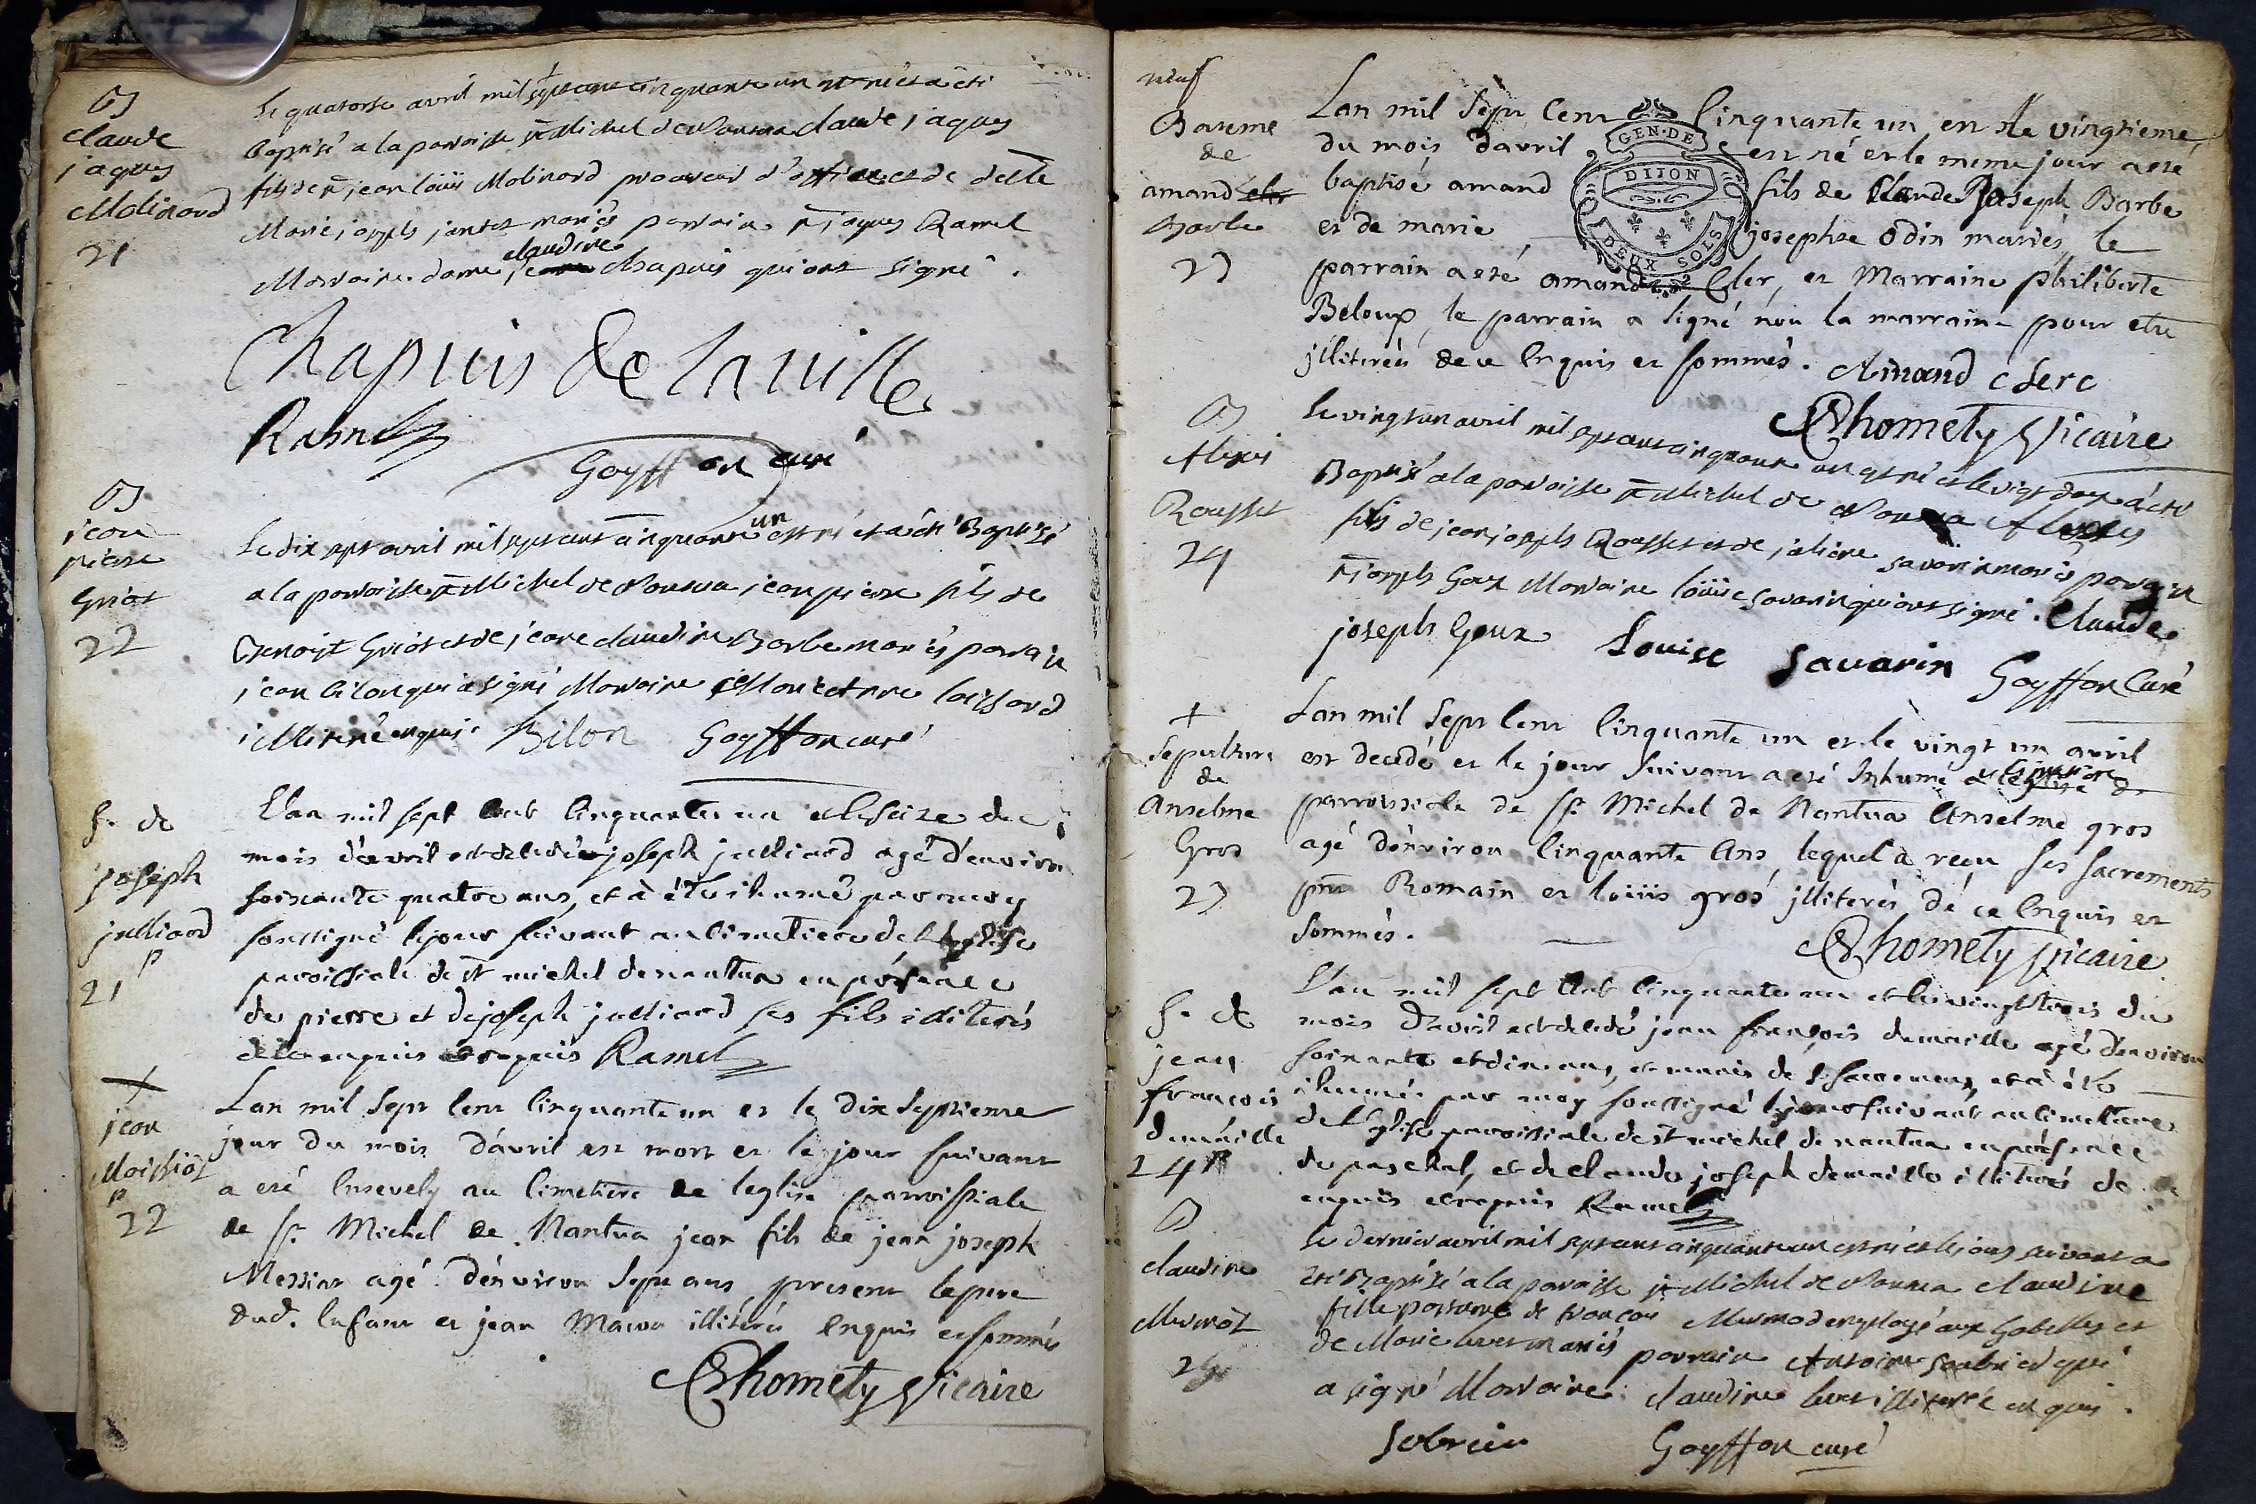 B
Claude
jaques
Molinard
21
Le quatorse avril mil sept cent cinquante un est né et a été
baptisé a la paroisse st Michel de Nantua Claude jaques
fils de sr jean loüis Molinard procureur d'office et de delle
Marie joseph jantet mariés parrain sr jaques Ramel
Marraine dame claudine Chapuis qui ont signé.
Chapuis De la ville
Ramel
Goyffon curé
B
jean
pierre
Griot
22
Le dix sept avril mil sept cent cinquante un est né et a été Baptisé
a la paroisse st Michel de Nantua jean pierre fils de
Benoist Griot et de jeane claudine Barbe mariés parrain
jean Bilon qui a signé Marraine Marie
illitéré enquis. Bilon Goyffon curé
S. de
joseph
julliard
p
21
L'an mil sept Cent Cinquante un et le seize du
mois d'avril est décédé joseph julliard agé d'environ
soixante quatre ans, et à été ihumé par moy
soussigné le jour suivant au Cimetiere de l'Eglise
paroissiale de st michel de nantua en présence
de pierre et de joseph julliard ses fils illiterés
de ce enquis et requis Ramel
+
jean
Moissiat
p
22
Lan mil Sept Cent Cinquante un et le dix Septieme
jour du mois d'avril est mort et le jour suivant
a eté Ensevely au Cimetière de leglise parroissiale
de St. Michel de Nantua jean fils de jean joseph
Messiat agé d'environ Sept ans, present le pere
dud. Enfant et jean illiterés Enquis et sommés
Chomety Vicaire
neuf
Bateme
de
amand
Barbe
23
Lan mil Sept Cent Cinquante un, en le vingtieme
du mois davril est né et le meme jour a eté
baptisé amand fils de Claude Joseph Barbe
et de marie josephte Odin mariés, le
parrain a eté amand Cler, et Marraine philiberte
Beloux, le parrain a signé non la marraine pour etre
jlliterée de ce Enquis et sommés. Amand Clerc
Chomety Vicaire
GEN. DE
DIJON
DEUX SOLS
B
Alexis
Rousset
24
Le vingt un avril mil sept cent cinquante un est né et le vigt deux a été
Baptisé a la paroisse st Michel de Nantua Alexis
fils de jean joseph Rousset et de juliene savarin mariés parrain
sr joseph Goux Marraine loüise savarin qui ont signé. Claude
joseph Goux Louise Savarin Goyffon Curé
+
Sepulture
de
Anselme
Gros
23
Lan mil Sept Cent Cinquante un et le vingt un avril
est decedé et le jour Suivant a eté Inhumé
parroissiale de St. Michel de Nantua Anselme gros
agé d'environ Cinquante Ans, lequel à reçu ses sacrements
pnt Romain et loüis gros jlliterés de ce Enquis et
sommés.
Chomety Vicaire
S. de
jean
françois
demaille
24 p
L'an mil sept Cent Cinquante un et le vingt trois du
mois d'avril est décédé jean françois demaille agé d'environ
soixante et dix ans, et munis de ses sacremens, et a été
ihumé par moy soussigné le jour suivant au Cimetiere
de l'Eglise paroissiale de st michel de nantua en présence
de paschal, et de claude joseph demaille illiterés de ce
enquis et requis Ramel
B
claudine
Murmot
25
Le dernier avril mil sept cent cinquante un est née et le jour suivant a
été Baptisée a la paroisse st Michel de Nantua claudine
fille postume de françois Murmod employé aux Gabelles et
de Marie mariés parrain Antoine qui
a signé Marraine claudine illiterée enquis.
Sobrein Goyffon curé